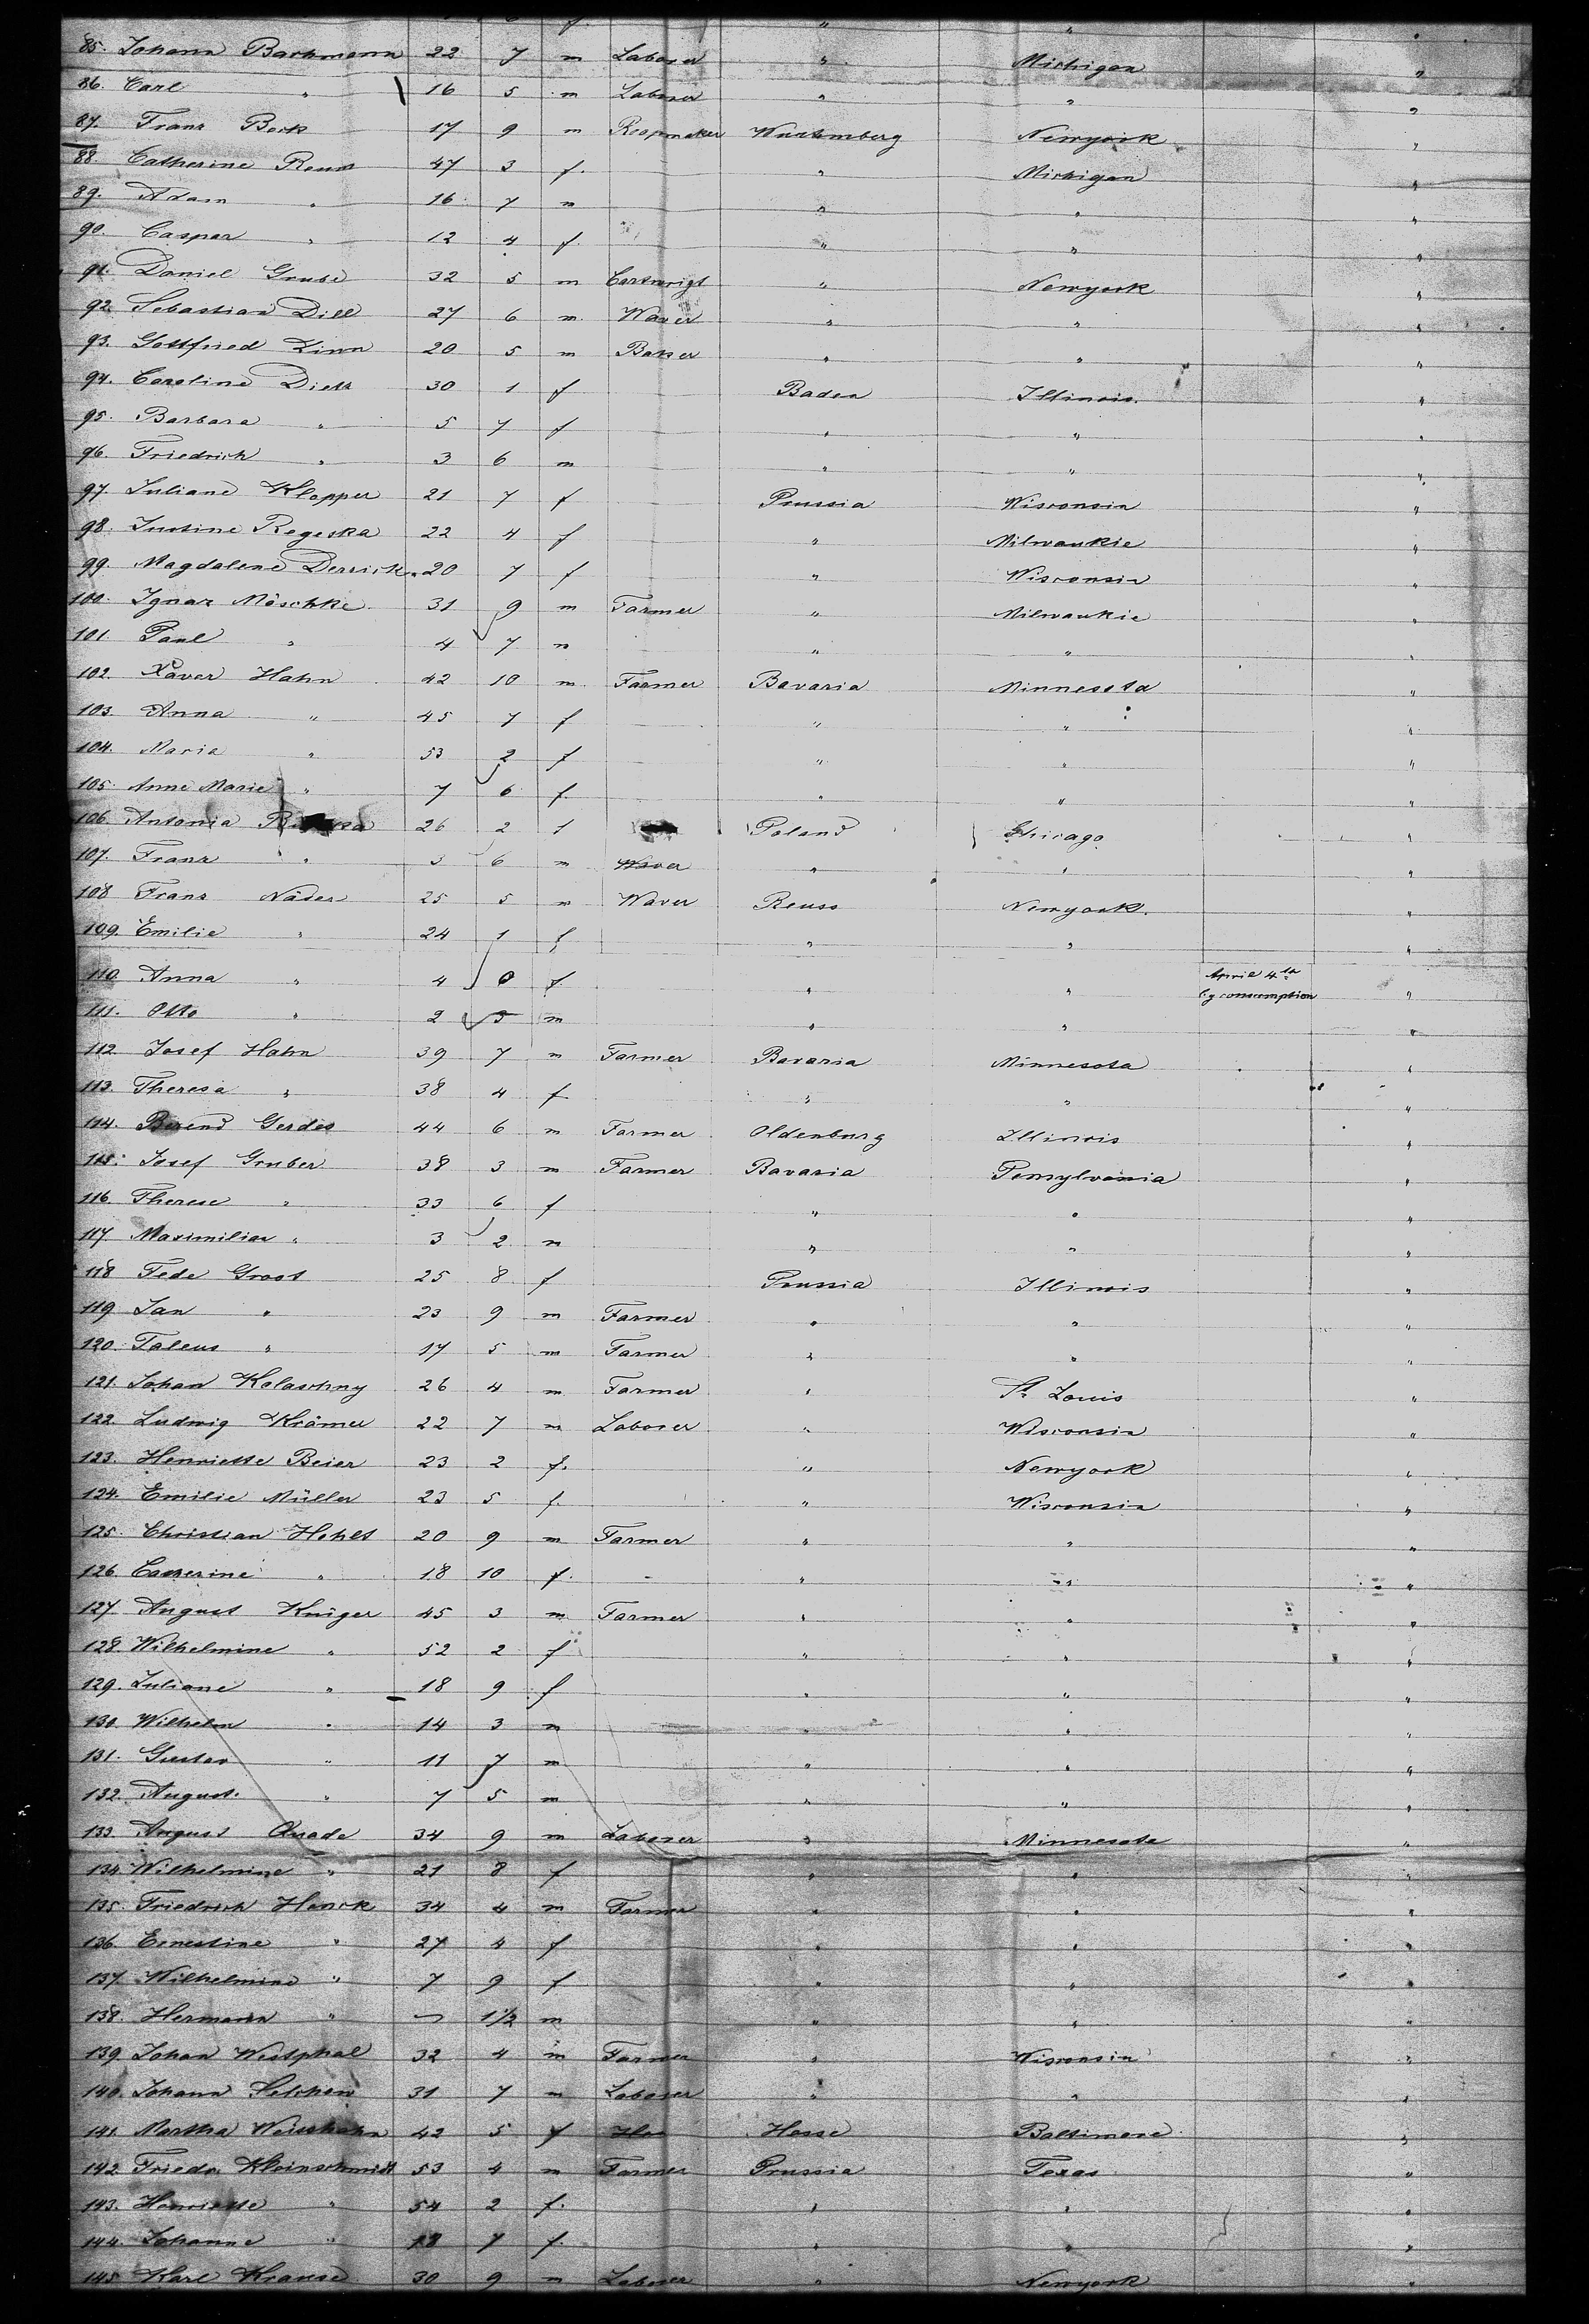 6 f. " " "
85. Johann Bachmann 22 7 m Laborer " Michigan "
86. Carl " 16 5 m Laborer " " "
87. Franz Beck 17 9 m Roopmaker Wurtemberg Newyork "
88. Catherine Reuss 47 3 f. " Michigan "
89. Adam " 16 7 m " " "
90. Caspar " 12 4 f. " " "
91. Daniel Grube 32 5 m Cartwrigt " Newyork "
92. Sebastian Dill 27 6 m Waver " " "
93. Gottfried Zinn 20 5 m Baker " " "
94. Caroline Dietz 30 1 f Baden Illinois. "
95. Barbara " 5 7 f " " "
96. Friedrich " 3 6 m " " "
97. Juliane Klopper 21 7 f Prussia Wisconsin "
98. Justine Rogeska 22 4 f " Milwaukie "
99. Magdalene Derrick 20 7 f " Wisconsin "
100. Ignaz Möschke 31 9 m Farmer " Milwaukie "
101. Paul " 4 7 m " " "
102. Xaver Hahn 42 10 m Farmer Bavaria Minnesota "
103. Anna " 45 7 f " " "
104. Maria " 53 2 f " " "
105. Anne Marie " 7 6 f. " " "
106. Antonia 26 2 f Poland Chicago "
107. Franz " 3 6 m Waver " " "
108 Franz Näder 25 5 m Waver Reuss Newyork. "
109. Emilie " 24 1 f " " "
110. Anna " 4 0 f " " April 4th by consumption "
111. Otto " 2 5 m " " "
112. Josef Hahn 39 7 m Farmer Bavaria Minnesota "
113. Theresa " 38 4 f " " "
114. Berend Gerdes 44 6 m Farmer Oldenburg Illinois "
115. Josef Gruber 38 3 m Farmer Bavaria Pensylvania "
116. Therese " 33 6 f " " "
117 Maximilian " 3 2 m " " "
118 Fede Groot 25 8 f Prussia Illinois "
119 Jan " 23 9 m Farmer " " "
120. Taleus " 17 5 m Farmer " " "
121. Johan Kalaschny 26 4 m Farmer " St. Louis "
122. Ludwig Krämer 22 7 m Laborer " Wisconsin "
123. Henriette Beier 23 2 f. " Newyork "
124. Emilie Müller 23 5 f. " Wisconsin "
125. Christian Hohls 20 9 m Farmer " " "
126. Catherine " 18 10 f. " " "
127. August Krüger 45 3 m Farmer " " "
128. Wilhelmine " 52 2 f " " "
129. Juliane " 18 9 f " " "
130. Wilhelm " 14 3 m " " "
131. Gustav " 11 7 m " " "
132. August. " 7 5 m " " "
133. August Quade 34 9 m Laborer " Minnesota "
134 Wilhelmine " 21 8 f " " "
135. Friedrich Henck 34 4 m Farmer " " "
136. Ernestine " 27 4 f " " "
137. Wilhelmine " 7 9 f " " "
138. Hermann " – 1½ m " " "
139. Johan Westphal 32 4 m Farmer " Wisconsin "
140. Johann Selchen 31 7 m Laborer " " "
141. Martha Weisshahn 42 5 f Hes Hesse Baltimore "
142 Friedr. Kleinschmidt 53 4 m Farmer Prussia Texas "
143. Henriette " 54 2 f. " " "
144. Johanne " 18 7 f. " " "
145 Karl Krause 30 9 m Laborer " Newyork "